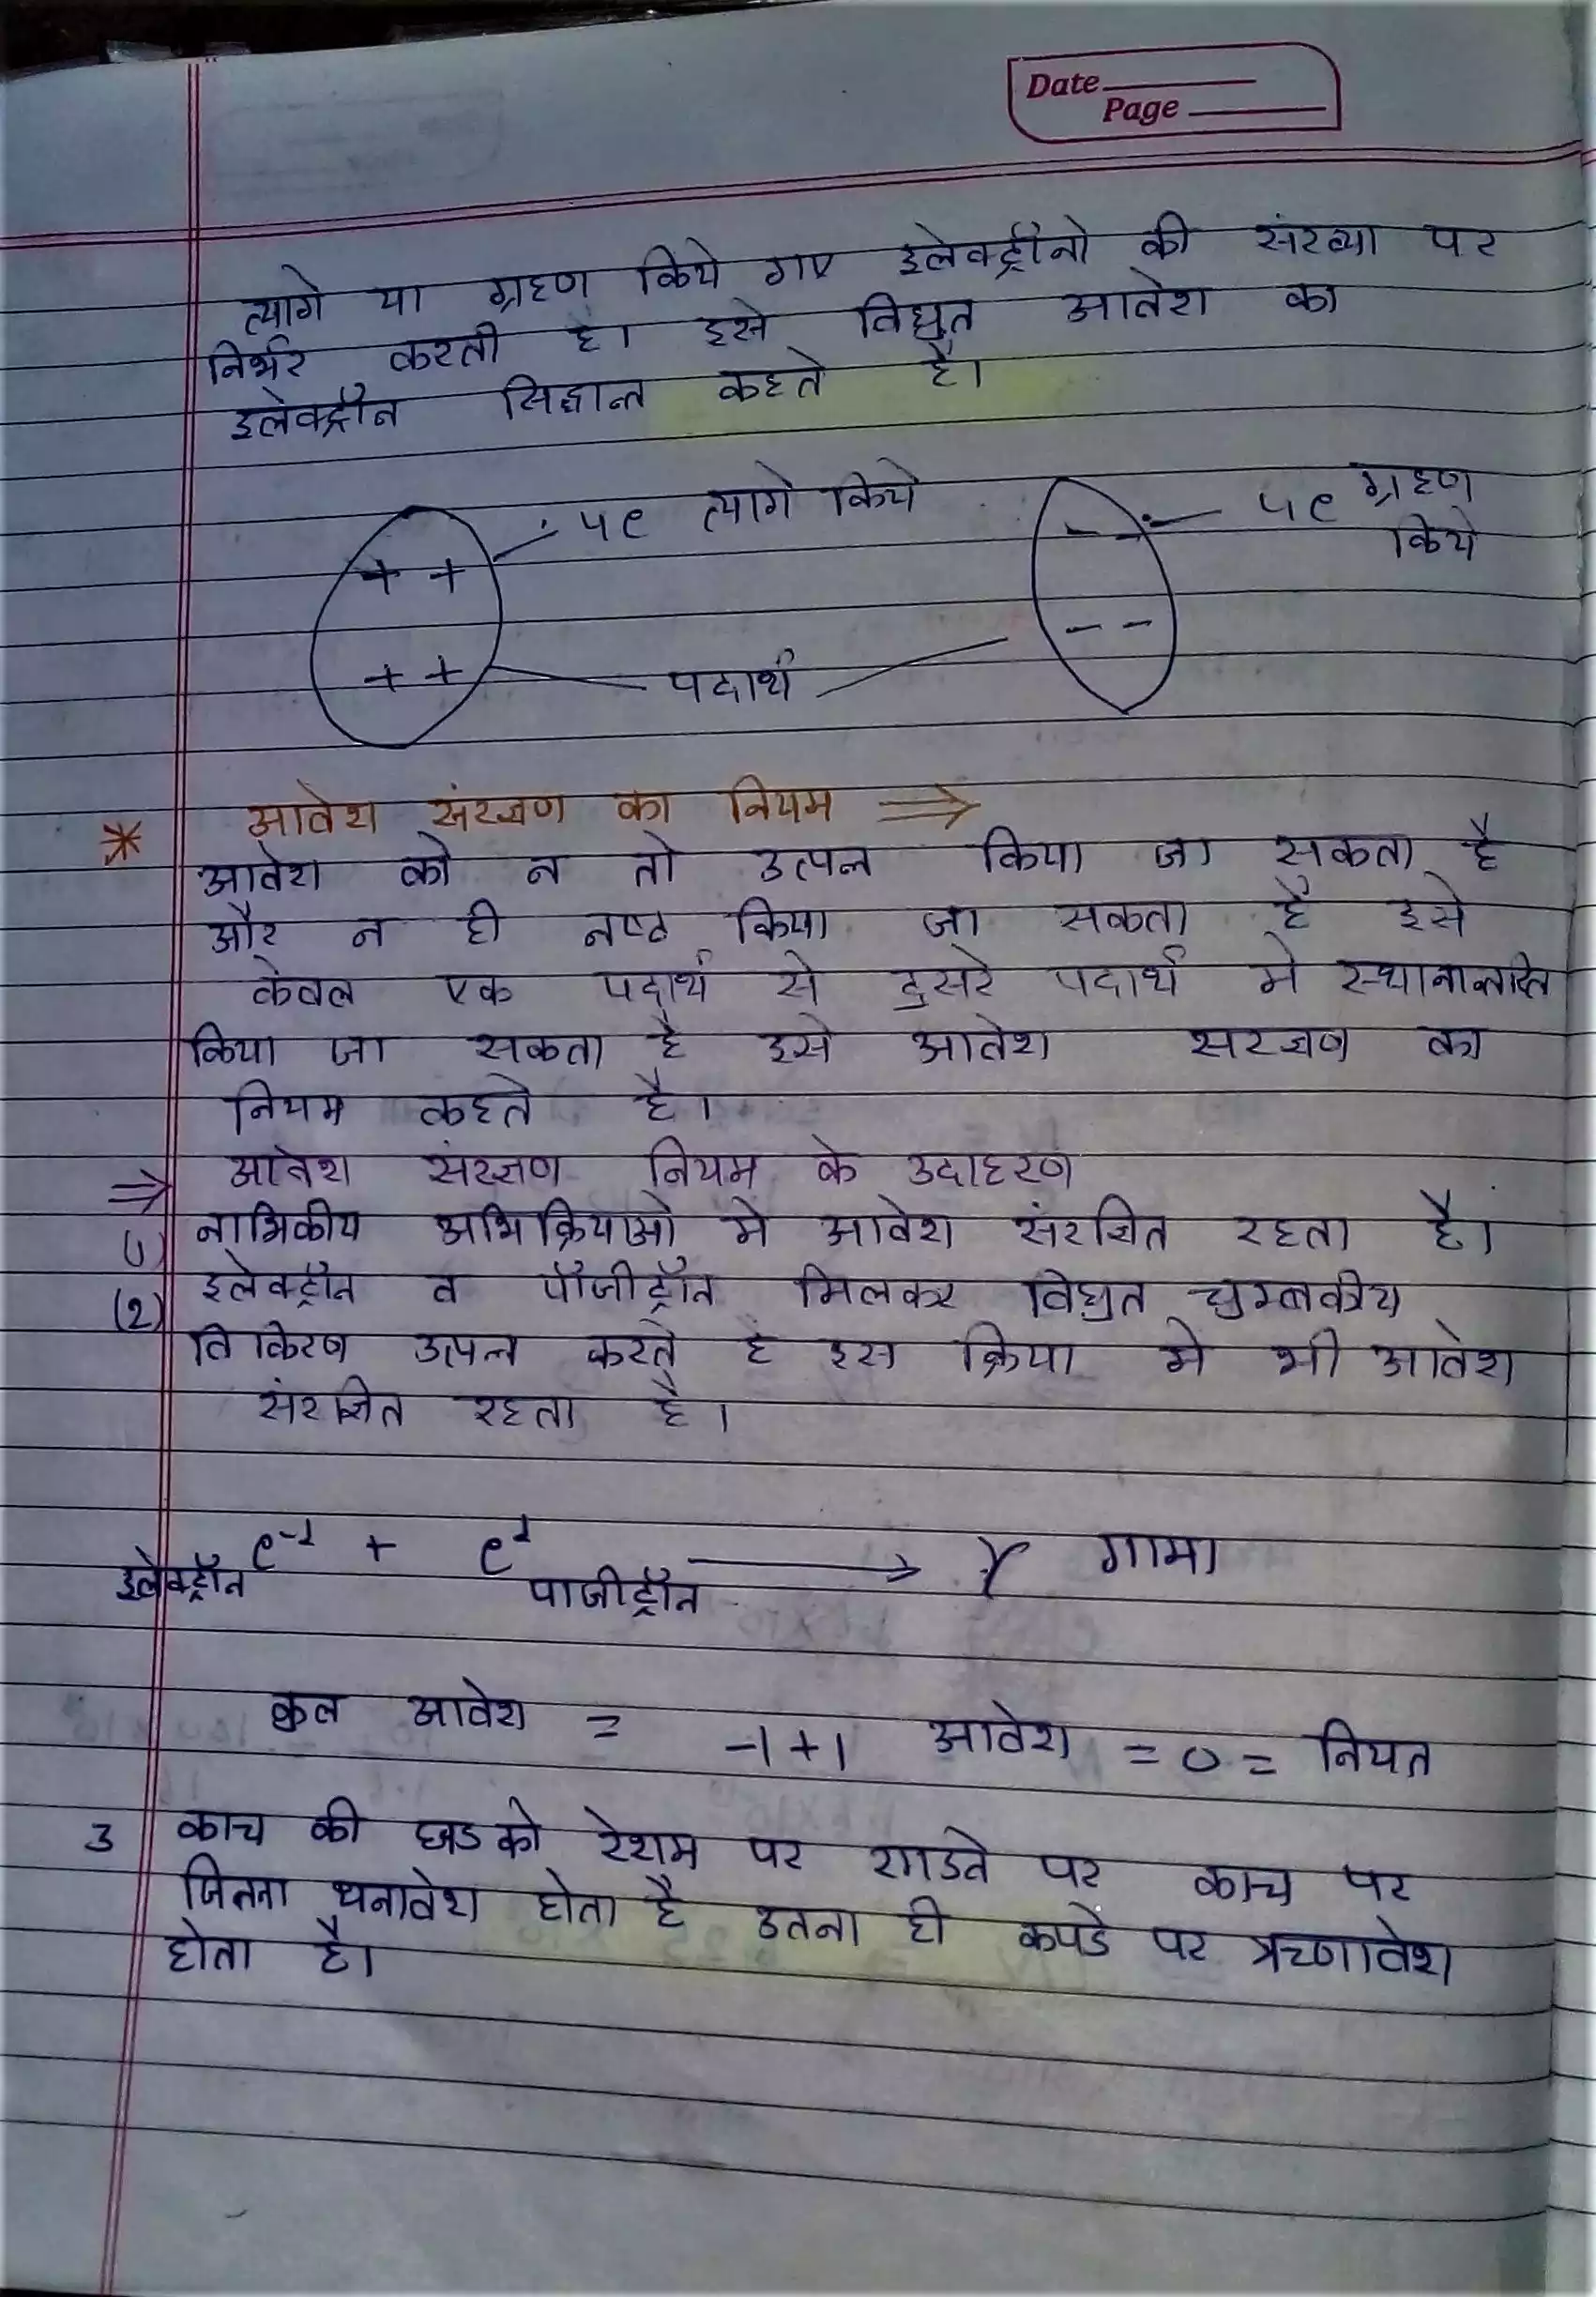 Date
Page
त्यागे या ग्रहण किये गए इलेक्ट्रोनो की संख्या पर
निर्भर करती है। इसे विद्युत आवेश का
इलेक्ट्रॉन सिद्धान्त कहते है।
4e त्यागे किये
4e ग्रहण
किये
+ +
- -
+ +
- -
पदार्थ
* आवेश संरक्षण का नियम ⇒
आवेश को न तो उत्पन्न किया जा सकता है
और न ही नष्ट किया जा सकता है इसे
केवल एक पदार्थ से दुसरे पदार्थ मे
किया जा सकता है इसे आवेश सरक्षण का
नियम कहते है।
⇒ आवेश संरक्षण नियम के उदाहरण
(1) नाभिकीय अभिक्रियाओ मे आवेश संरक्षित रहता है।
(2) इलेक्ट्रॉन व पॉजीट्रॉन मिलकर विद्युत चुम्बकीय
विकिरण उत्पन्न करते है इस क्रिया मे भी आवेश
संरक्षित रहता है।
e⁻¹ + e¹ ⟶ γ गामा
इलेक्ट्रॉन पाजीट्रॉन
कुल आवेश = -1+1 आवेश = 0 = नियत
3 काच की छड को रेशम पर रगडने पर काच पर
जितना धनावेश होता है उतना ही कपडे पर ऋणावेश
होता है।